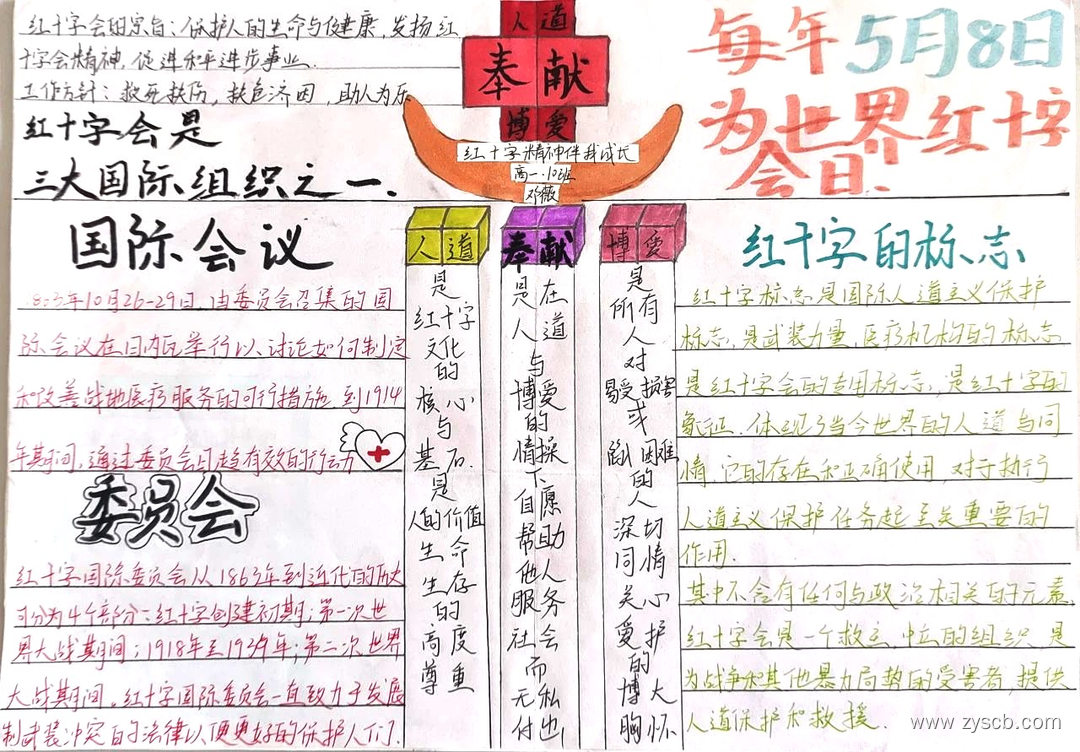 红十字会的宗旨：保护人的生命与健康，发扬红
十字会精神，促进和平进步事业.
工作方针：救死扶伤，扶危济困，助人为乐
红十字会是
三大国际组织之一.
人道
奉献
博爱
红十字精神伴我成长
高一.10班
邓薇
每年5月8日
为世界红十字
会日.
国际会议
1863年10月26-29日，由委员会召集的国
际会议在日内瓦举行以、讨论如何制定
和改善战地医疗服务的可行措施.到1914
年期间，通过委员会日趋有效的行动
委员会
红十字国际委员会从1863年到近代的历史
可分为4个部分：红十字创建初期；第一次世
界大战期间；1918年至1939年；第二次世界
大战期间。红十字国际委员会一直致力于发展
制武装冲突的法律以便更好的保护人们.
人道
是
红十字
文化
的
核心
与
基石.
是
人的价值
生命
生存
的
高度
尊重
奉献
是在
人道
与
博爱
的
情操
下
自愿
帮助
他人
服务
社会
而
无私
付出
博爱
是
所有
人
对
易受损害
或
困难
的
人
深切
同情
关心
爱护
的
博大
胸怀
红十字的标志
红十字标志是国际人道主义保护
标志，是武装力量，医疗机构的标志
是红十字会的专用标志，是红十字的
象征.体现了当今世界的人道与同
情.它的存在和正确使用，对于执行
人道主义保护任务起至关重要的
作用.
其中不会有任何与政治相关的元素.
红十字会是一个独立.中立的组织.是
为战争和其他暴力局势的受害者，提供
人道保护和救援.
www.zyscb.com